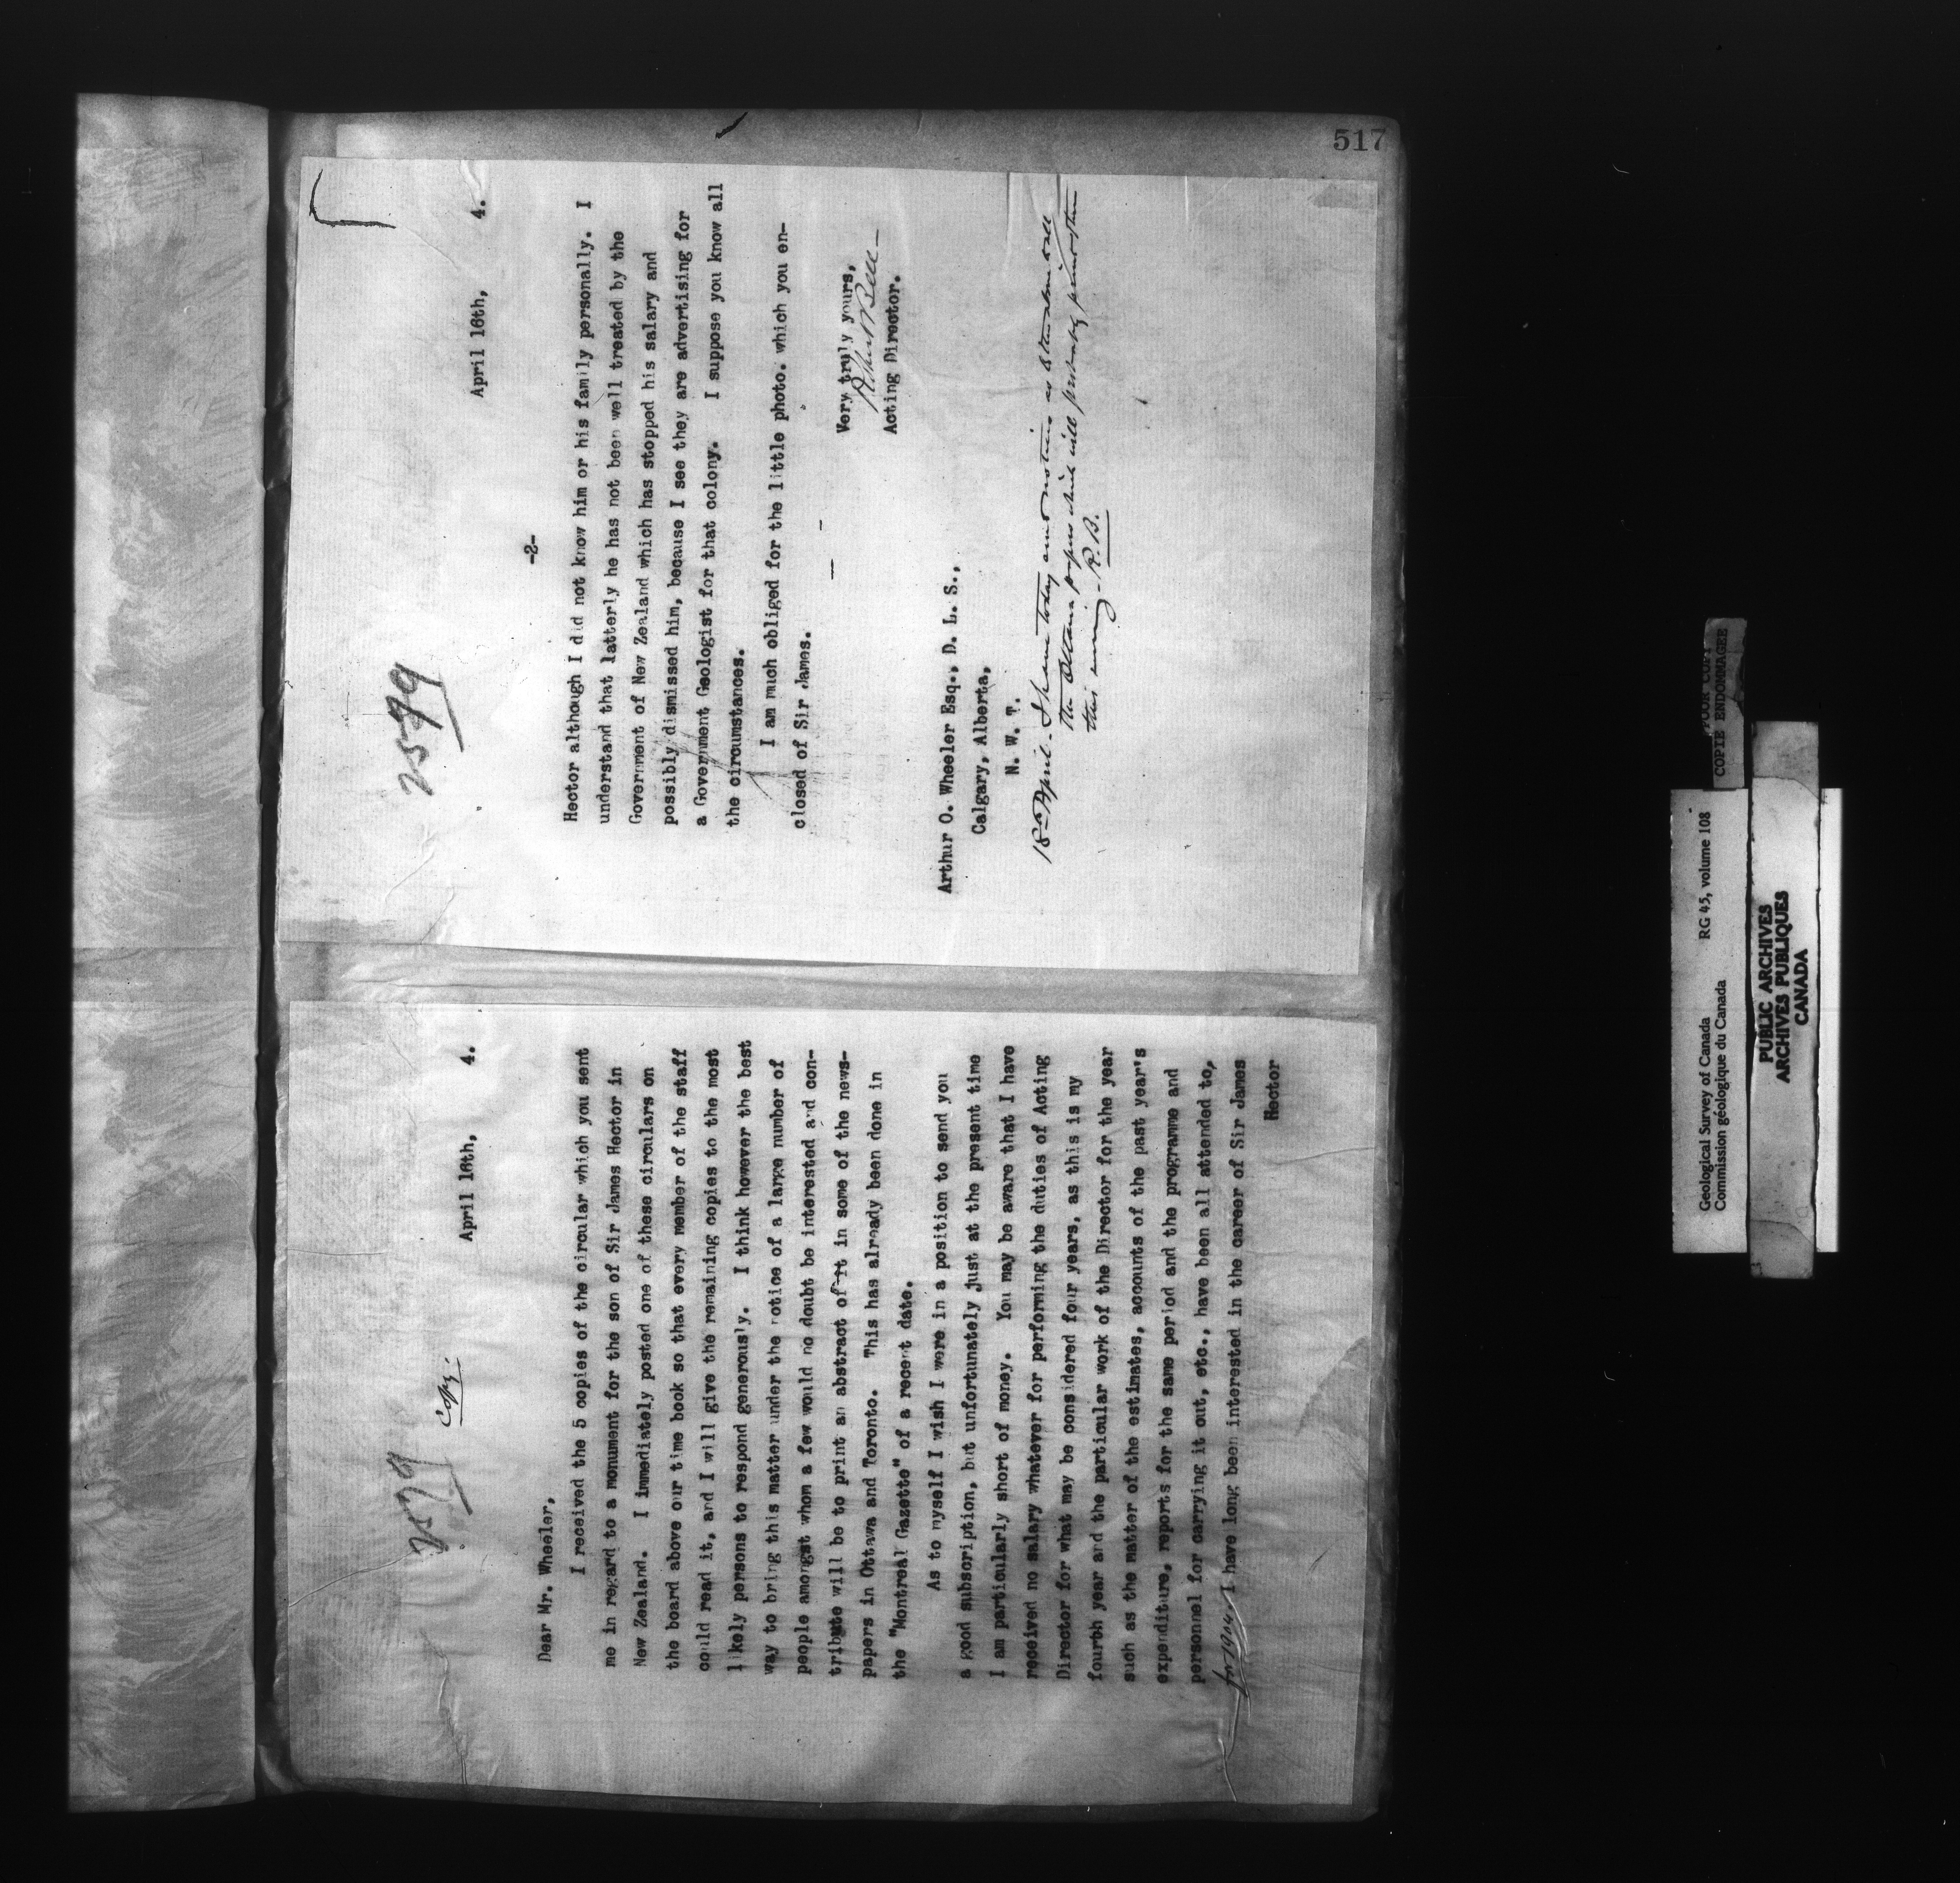 2579
Copy.
April 16th, 4.
Dear Mr. Wheeler,
I received the 5 copies of the circular which you sent
me in regard to a monument for the son of Sir James Hector in
New Zealand. I immediately posted one of these circulars on
the board above our time book so that every member of the staff
could read it, and I will give the remaining copies to the most
likely persons to respond generously. I think however the best
way to bring this matter under the notice of a large number of
people amongst whom a few would no doubt be interested and con-
tribute will be to print an abstract of it in some of the news-
papers in Ottawa and Toronto. This has already been done in
the "Montreal Gazette" of a recent date.
As to myself I wish I were in a position to send you
a good subscription, but unfortunately just at the present time
I am particularly short of money. You may be aware that I have
received no salary whatever for performing the duties of Acting
Director for what may be considered four years, as this is my
fourth year and the particular work of the Director for the year
such as the matter of the estimates, accounts of the past year's
expenditure, reports for the same period and the programme and
personnel for carrying it out, etc., have been all attended to,
for 1904. I have long been interested in the career of Sir James
Hector
2579
April 16th, 4.
-2-
Hector although I did not know him or his family personally. I
understand that latterly he has not been well treated by the
Government of New Zealand which has stopped his salary and
possibly dismissed him, because I see they are advertising for
a Government Geologist for that colony. I suppose you know all
the circumstances.
I am much obliged for the little photo. which you en-
closed of Sir James.
Very truly yours,
Robert Bell
Acting Director.
Arthur O. Wheeler Esq., D. L. S.,
Calgary, Alberta,
N. W. T.
18th April - I have today notices
the Ottawa papers which will probably print them
this evening - R. B.
517
Geological Survey of Canada RG 45, volume 108
Commission géologique du Canada
POOR COPY
COPIE ENDOMMAGEE
PUBLIC ARCHIVES
ARCHIVES PUBLIQUES
CANADA